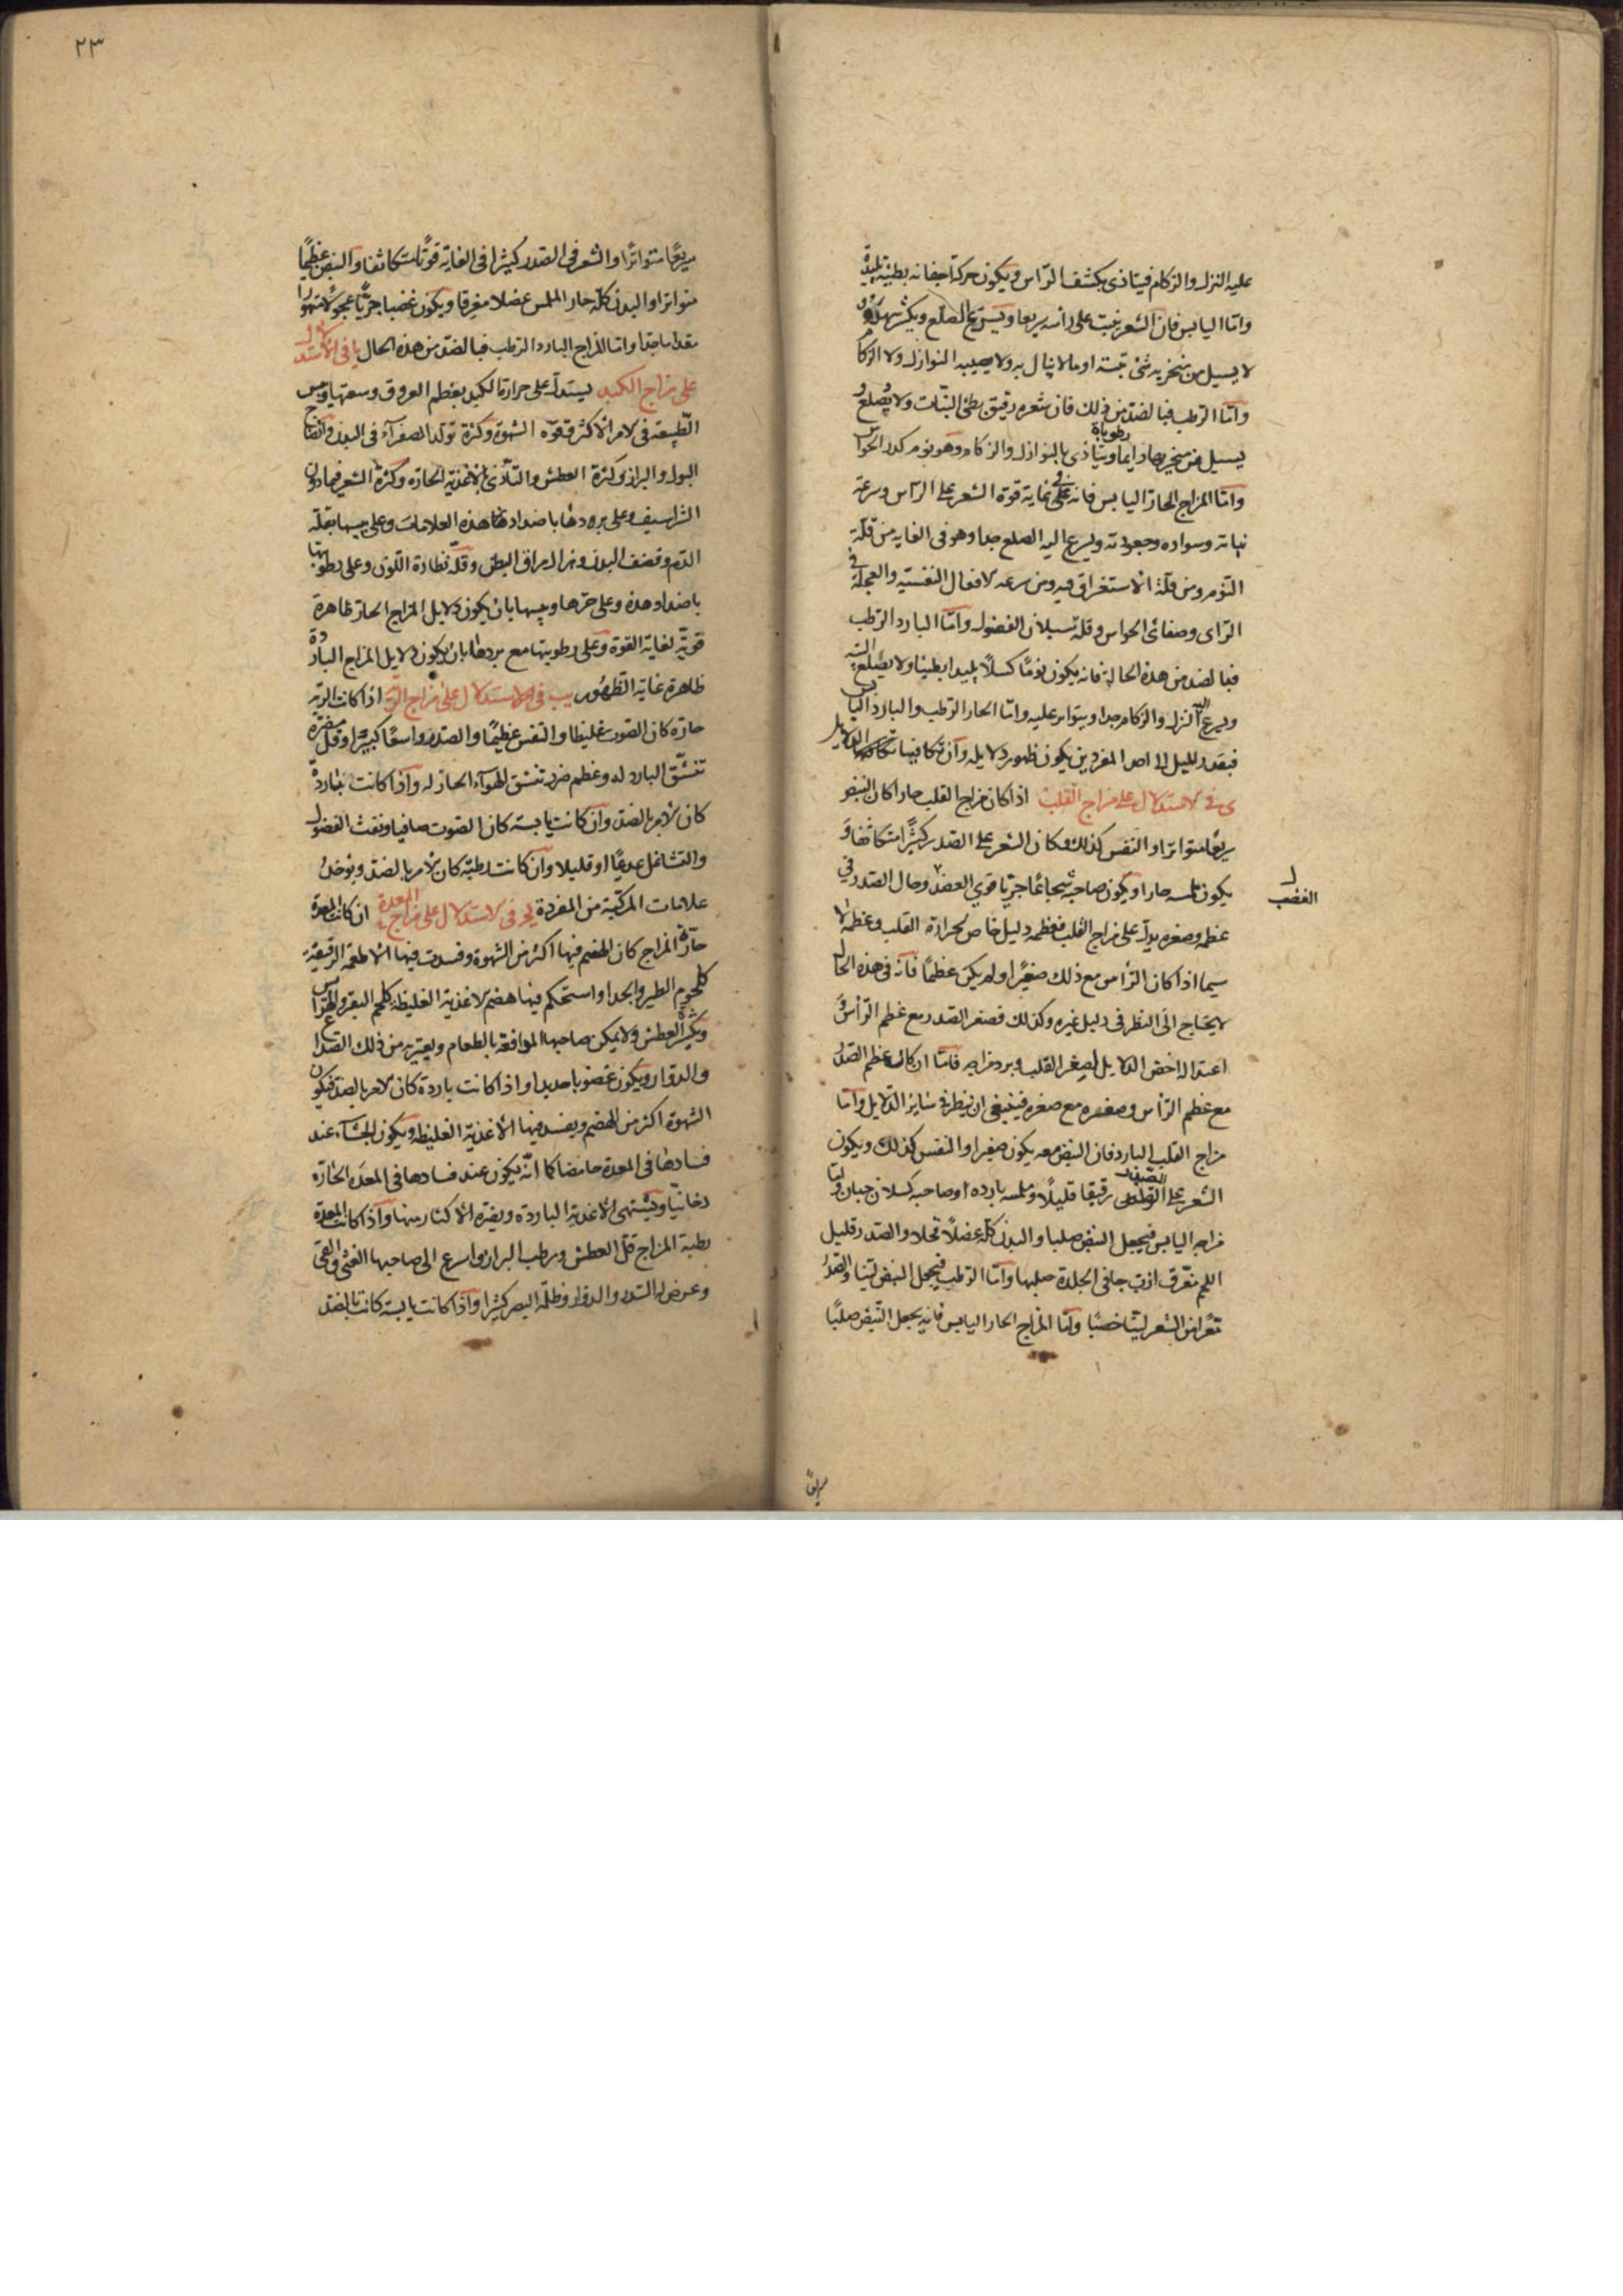 عليه النزل والزكام فيتاذى بكشف الرّاس ويكون حركة اجفانه بطيئة بليدة
وامّا اليابس فان الشعر ينبت على راسه سريعا ويسرع الصلع ويكثر سهره و
لا يسيل من منخريه شئ بتة او ما لا يبال به ولا يصيبه النوازل ولا الزكام
وامّا الرطب فبالضد من ذلك فان شعره رقيق بطئ النبات ولا يصلع و
يسيل من منخريه رطوبات دايما ويتاذى بالنوازل والزكام وهو نوم كدر الحواس
وامّا المزاج الحار اليابس فانه على نهاية قوة الشعر على الرّاس وسرعة
نباته وسواده وجعودته ويسرع اليه الصلع جدا وهو فى الغاية من قلّة
النّوم ومن قلة الاستغراق فيه ومن سرعه الافعال النفسيّه والعجلة فى
الرّاى وصفاء الحواس وقلة سيلان الفضول وامّا البارد الرطب
فبالضد من هذه الحالة فانه يكون نومًا كسلاً بليدا بطيئا ولا يصلع البتّه
ويسرع اليه النزله والزكام جدا ويتواتر عليه وامّا الحار الرطب والبارد اليابس
فبقدر الميل الى احد المفردين يكون ظهور دلايله وان تكافيا تكافت الدلايل
ى فى الاستدلال على مزاج القلب اذا كان مزاج القلب حارا كان النبض
سريعا متواترا والنفس كذلك وكان الشعر على الصدر كثيرًا متكاثفا و
يكون ملمسه حارا ويكون صاحبه شجاعًا جريّا قوى الغضب وحال الصدر فى
الغضب
عظمه وصغره يدل على مزاج القلب فعظمه دليل خاص لحرارة القلب وعظمه لا
سيما اذا كان الرّأس مع ذلك صغيرًا او لم يكن عظيمًا فانّه فى هذه الحال
لا يحتاج الى النظر فى دليل غيره وكذلك فصغر الصدر مع عظم الرّأس و
اعتداله اخص الدلايل لصغر القلب وبرد مزاجه فامّا ان كان عظم الصدر
مع عظم الرّأس وصغره مع صغره فينبغى ان ينظر فى سائر الدّلايل وامّا
مزاج القلب البارد فان النبض معه يكون صغيرا والنفس كذلك ويكون
الشعر على الصدر رقيقا قليلاً وملمسه باردا وصاحبه كسلان جبان وامّا
مزاجه اليابس فيجعل النبض صلبا والبدن كلّه عضلاً قحلا والصدر قليل
اللحم معرّق ازبّ جافى الجلدة صلبها وامّا الرّطب فيجعل النبض ليّنا والصدر
معرّا من الشعر ليّنا خصبًا وامّا المزاج الحار اليابس فانه يجعل النّبض صلبًا
سريعًا
٢٣
سريعًا متواترًا والشعر فى الصدر كثيرا فى الغاية قويًّا متكاثفا والنبض عظيمًا
متواترا والبدن كلّه حار الملمس عضلا معرقا ويكون غضبا جريًّا عجولاً متهورا
مقداما جدا وامّا المزاج البارد الرّطب فبالضد من هذه الحال يا فى الاستدلال
على مزاج الكبد يستدل على حرارة الكبد بعظم العروق وسعتها ويبس
الطبيعة فى الامر الاكثر وقوّه الشهوة وكثرة تولّد الصفرآء فى البدن وانصباغ
البول والبراز وكثرة العطش والتأذى بالاغذية الحارّه وكثرة الشعر فيما دون
الشراسيف وعلى برودتها باضداد هذه العلامات وعلى يبسها بقلّه
الدّم وقضف البدن وهزال مراق البطن وقلّه نظارة اللون وعلى رطوبتها
باضداد هذه وعلى حرّها ويبسها بان يكون دلايل المزاج الحار ظاهرة
قويّة لغاية القوة وعلى رطوبتها مع بردها بان يكون دلايل المزاج الباردة
ظاهرة غاية الظهور يب فى الاستدلال على مزاج الريّة اذا كانت الريه
حارّه كان الصوت غليظا والنفس عظيمًا والصدر واسعًا كبيرًا وقلّ مضرّة
تنشّق البارد له وعظم ضرر تنشق الهوآء الحار له واذا كانت باردة
كان الامر بالضد وان كانت يابسه كان الصوت صافيا ونفث الفضول
والتشاغل عديمًا او قليلا وان كانت رطبة كان الامر بالضد ويوخذ
علامات المركّبة من المفردة يج فى الاستدلال على مزاج المعدة ان كانت المعدة
حارّة المزاج كان الهضم فيها اكثر من الشهوة وفسدت فيها الاطعمة الرقيقة
كلحوم الطير والجدا واستحكم فيها هضم الاغذية الغليظة كلحم البقر والهراس
ويكثر العطش ولا يمكن صاحبها الموافقة بالطعام ويعتريه من ذلك الصداع
والدوار ويكون غضوبا حديدا واذا كانت باردة كان الامر بالضد فيكون
الشهوة اكثر من الهضم ويفسد فيها الأغذية الغليظه ويكون الجشآء عند
فسادها فى المعدة حامضا كما انّه يكون عند فسادها فى المعدة الحارّه
دخانيّا ويشتهى الاغذية الباردة ويضره الاكثار منها واذا كانت المعدة
رطبة المزاج قلّ العطش ورطب البراز واسرع الى صاحبها الغثى والقئ
وعرض له السّدر والدوار وظلمة البصر كثيرا واذا كانت يابسة كانت بالضد